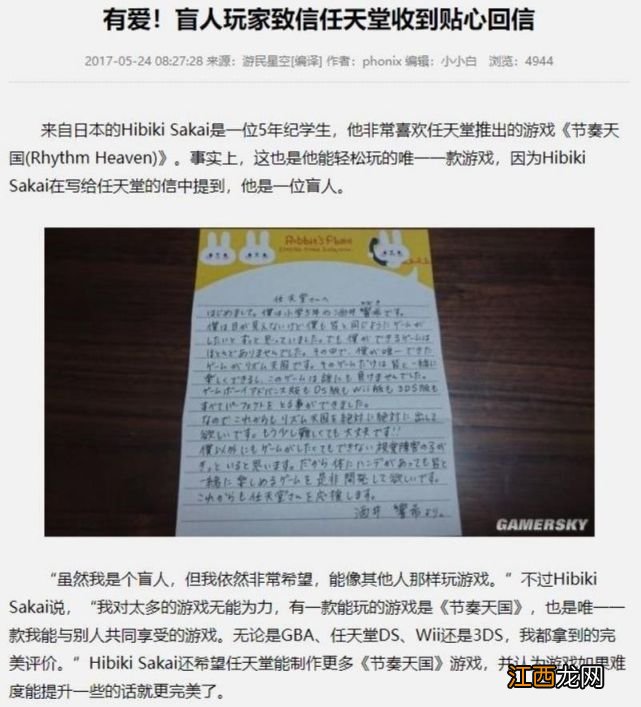 有爱！盲人玩家致信任天堂收到贴心回信
2017-05-24 08:27:28 来源：游民星空[编译] 作者：phonix 编辑：小小白 浏览：4944
来自日本的Hibiki Sakai是一位5年纪学生，他非常喜欢任天堂推出的游戏《节奏天
国(Rhythm Heaven)》。事实上，这也是他能轻松玩的唯一一款游戏，因为Hibiki
Sakai在写给任天堂的信中提到，他是一位盲人。
任天堂さんへ
はじめまして。僕は小学5年の酒井響希です。
僕は目が見えないけど僕も皆と同じようにゲームが
したいとずっと思っていました。でも僕ができるゲームは
ほとんどありませんでした。その中で、僕が唯一できた
ゲームがリズム天国です。そのゲームだけは皆と一緒に
楽しくできるし、このゲームは誰にも負けませんでした。
ゲームボーイアドバンス版もDS版もWii版も3DS版も
すべてパーフェクトをとる事ができました。
なのでこれからもリズム天国を絶対に絶対に出して
欲しいです。もう少し難しくても大丈夫です!!
僕以外にもゲームがしたくてもできない視覚障害の子が
きっといると思います。だから体にハンデがあっても皆と
一緒に楽しめるゲームを是非開発して欲しいです。
これからも任天堂さんを応援します。
酒井 響希より。
GAMERSKY
“虽然我是个盲人，但我依然非常希望，能像其他人那样玩游戏。”不过Hibiki
Sakai说，“我对太多的游戏无能为力，有一款能玩的游戏是《节奏天国》，也是唯一一
款我能与别人共同享受的游戏。无论是GBA、任天堂DS、Wii还是3DS，我都拿到的完
美评价。”Hibiki Sakai还希望任天堂能制作更多《节奏天国》游戏，并认为游戏如果难
度能提升一些的话就更完美了。
江西龙网